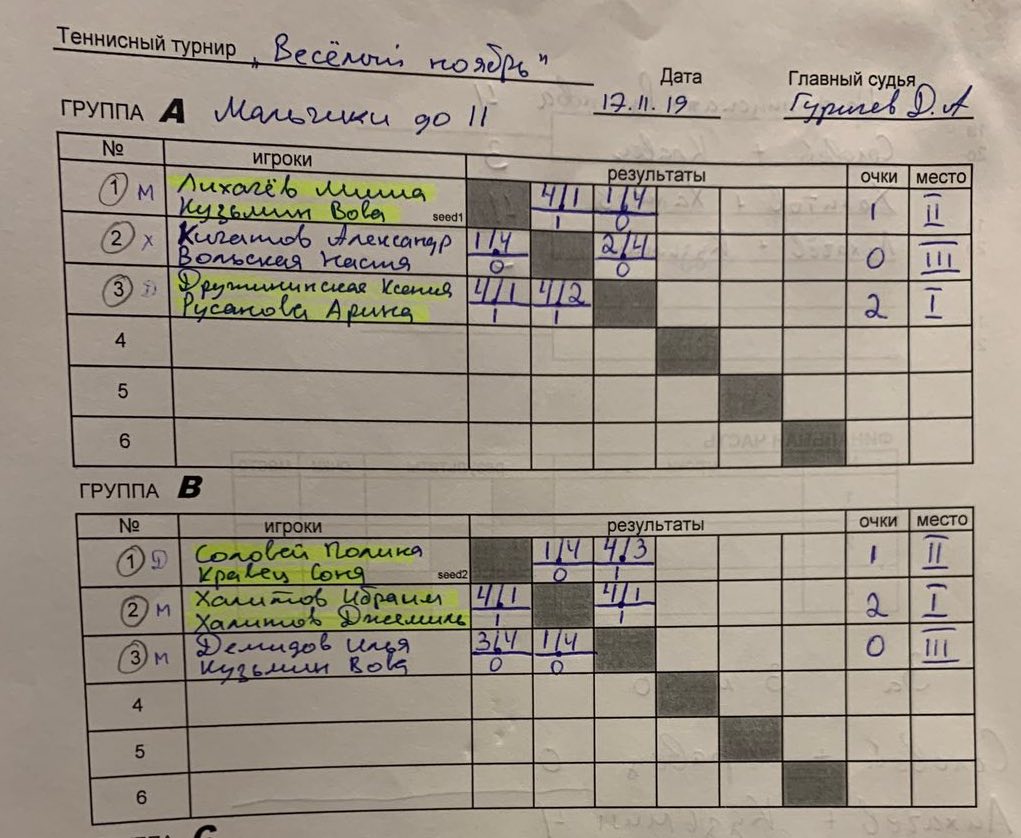 Теннисный турнир „Весёлый ноябрь"
Дата Главный судья
17.11.19
ГРУППА А Мальчики до 11
№ игроки результаты очки место
1 м Лихачёв Миша 4/1 1/4 1 II
Кузьмин Вова seed1 1 0
2 х Александр 1/4 2/4 0 III
Вольская Настя 0 0
3 D Дружининская Ксения 4/1 4/2 2 I
Русанова Арина 1 1
4
5
6
ГРУППА В
№ игроки результаты очки место
1 D Соловей Полина 1/4 4/3 1 II
Кравец Соня seed2 0 1
2 м Халитов Ибраим 4/1 4/1 2 I
Халитов Джемиль 1 1
3 м Демидов Илья 3/4 1/4 0 III
Кузьмин Вова 0 0
4
5
6